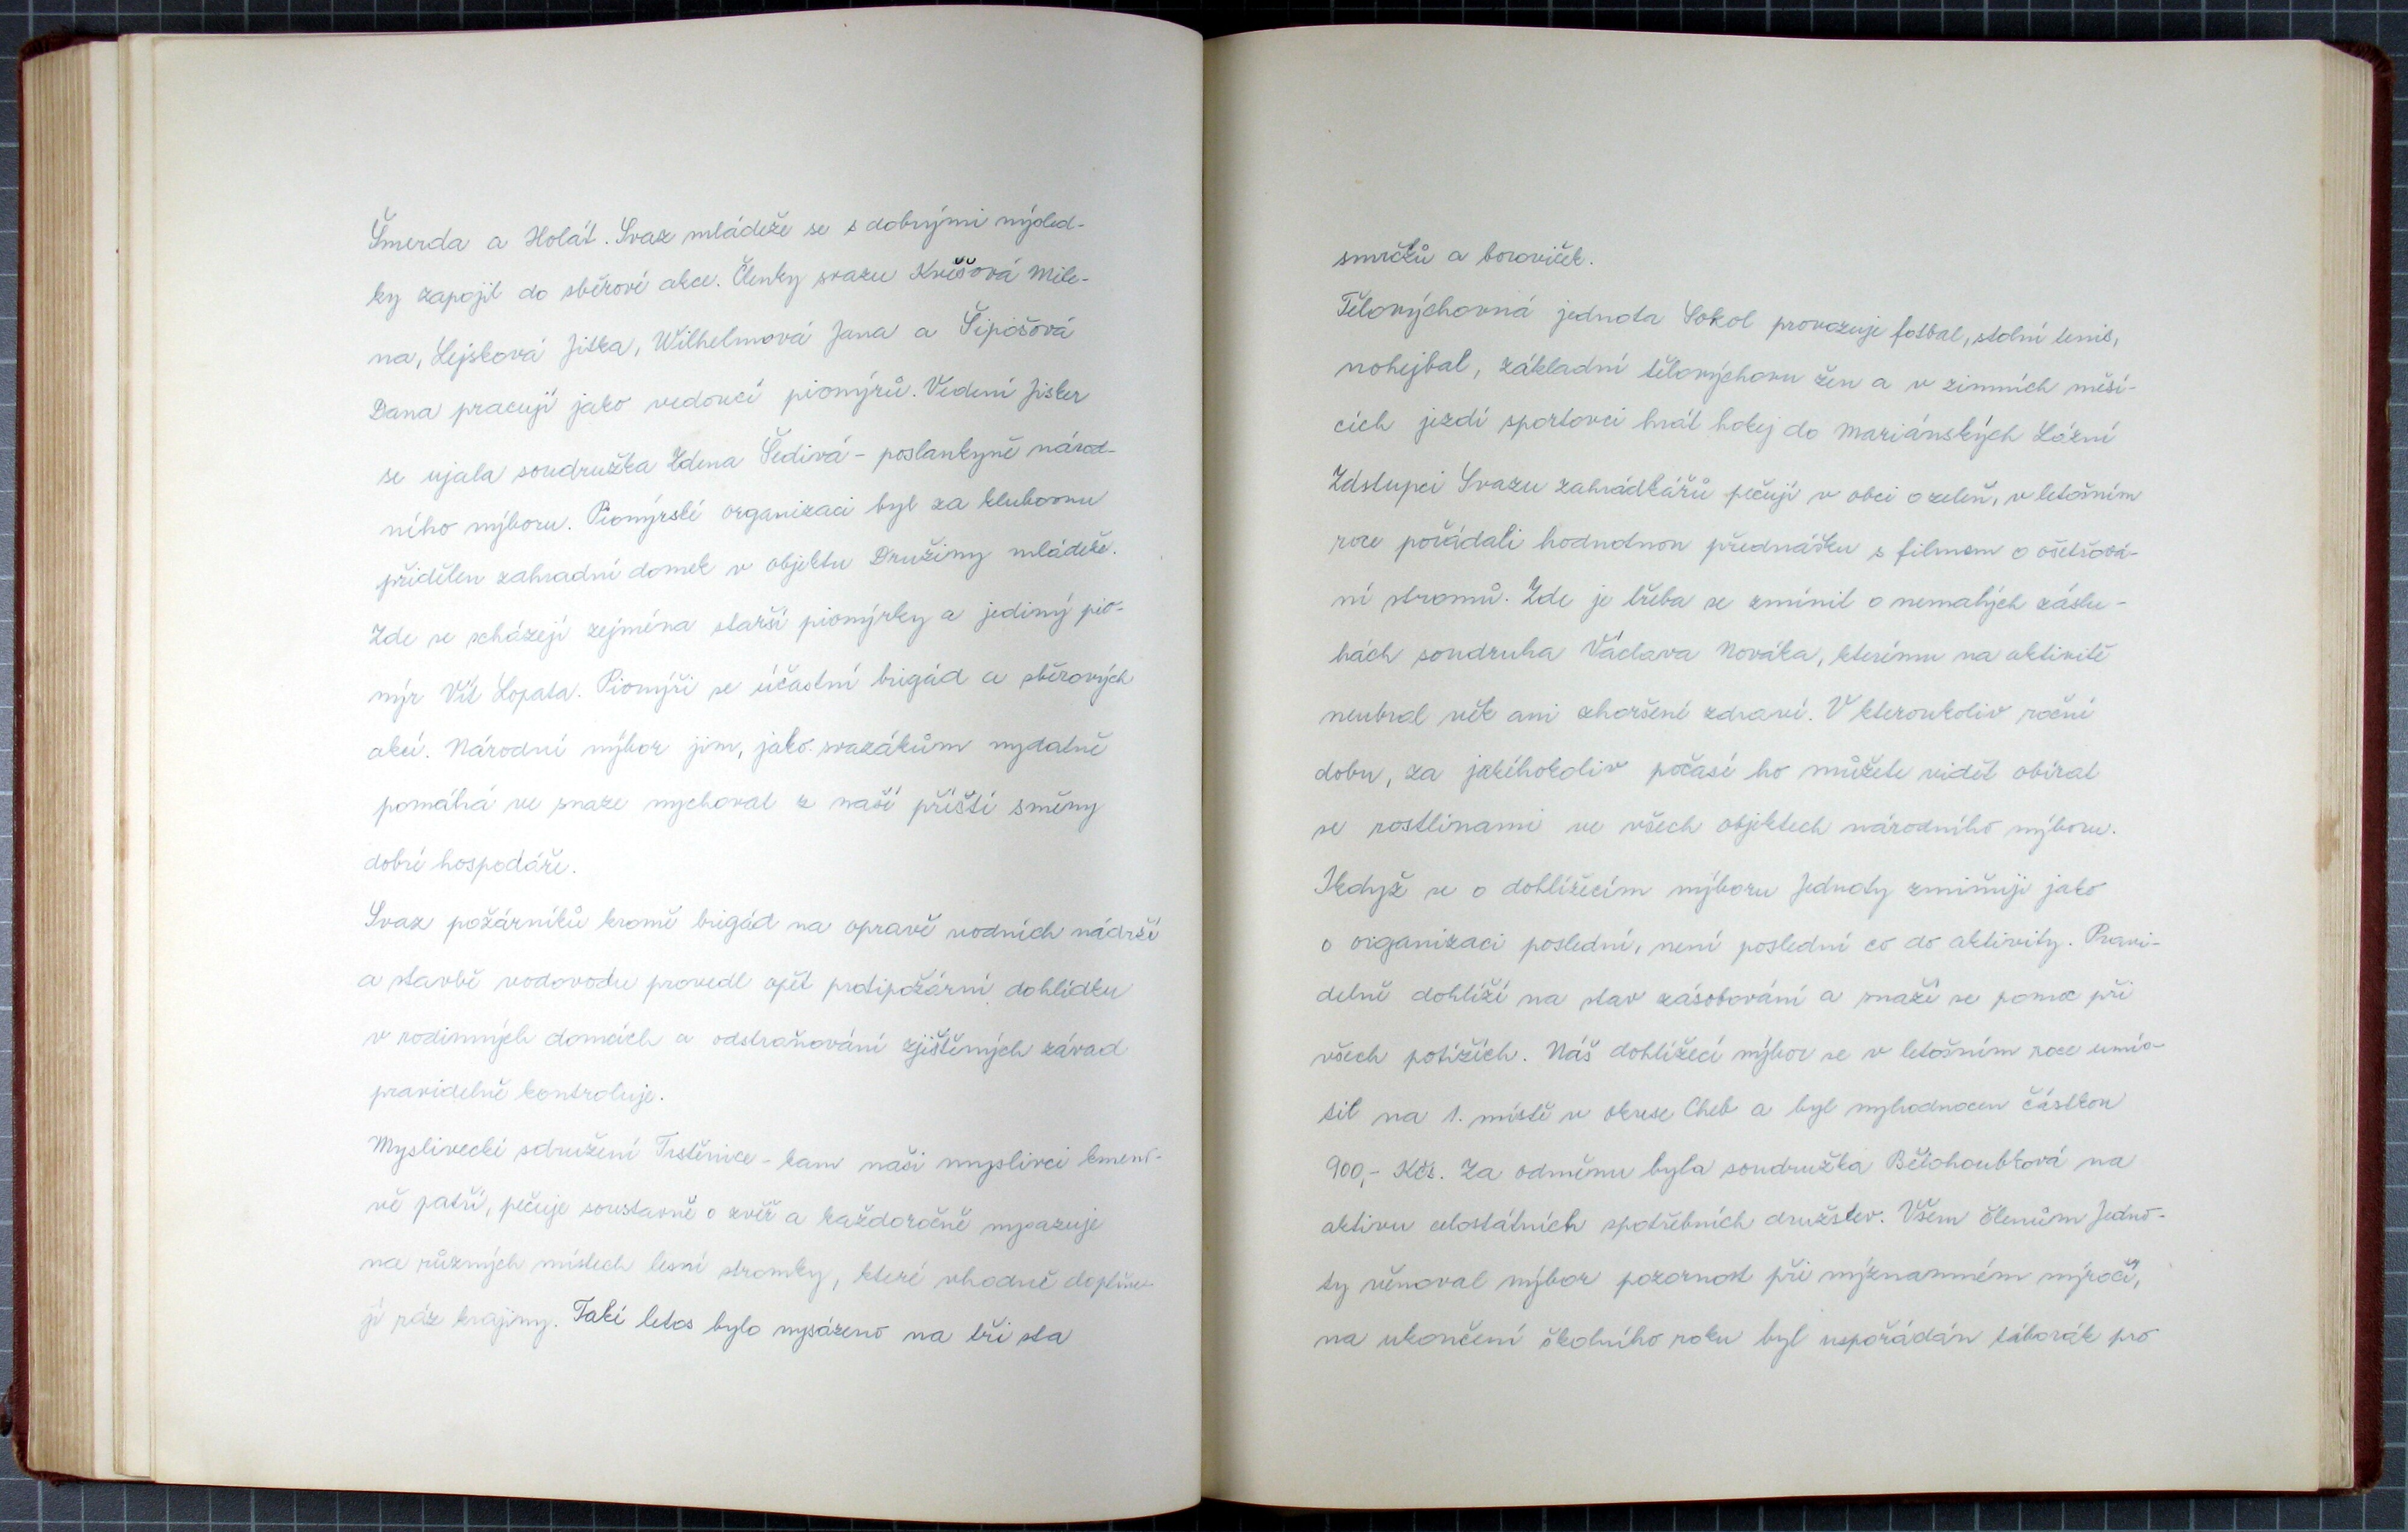 Šmerda a Holát. Svaz mládeže se s dobrými výsled-
ky zapojil do sběrové akce. Členky svazu Kvíšová Mile-
na, Lejsková Jitka, Wilhelmová Jana a Šipošová
Dana pracují jako vedoucí pionýrů. Vedení Jisker
se ujala soudružka Zdena Šedivá - poslankyně národ-
ního výboru. Pionýrské organizaci byl za klubovnu
přidělen zahradní domek v objektu Družiny mládeže.
Zde se scházejí zejména starší pionýrky a jediný pio-
nýr Vít Lopata. Pionýři se účastní brigád a sběrových
akcí. Národní výbor jim, jako svazákům vydatně
pomáhá ve snaze vychovat z naší příští směny
dobré hospodáře.
Svaz požárníků kromě brigád na opravě vodních nádrží
a stavbě vodovodu provedl opět protipožární dohlídku
v rodinných domcích a odstraňování zjištěných závad
pravidelně kontroluje.
Myslivecké sdružení Trstěnice - kam naši myslivci kmeno-
vě patří, pečuje soustavně o zvěř a každoročně vysazuje
na různých místech lesní stromky, které vhodně doplňu-
jí ráz krajiny. Také letos bylo vysázeno na tři sta
smrčků a boroviček.
Tělovýchovná jednota Sokol provozuje fotbal, stolní tenis,
nohejbal, základní tělovýchovu žen a v zimních měsí-
cích jezdí sportovci hrát hokej do Mariánských Lázní
Zástupci Svazu zahrádkářů pečují v obci o zeleň, v letošním
roce pořádali hodnotnou přednášku s filmem o ošetřová-
ní stromů. Zde je třeba se zmínit o nemalých záslu-
hách soudruha Václava Nováka, kterému na aktivitě
neubral věk ani zhoršené zdraví. V kteroukoliv roční
dobu, za jakéhokoliv počasí ho můžete vidět obírat
se rostlinami ve všech objektech národního výboru.
Ikdyž se o dohlížecím výboru Jednoty zmiňuji jako
o organizaci poslední, není poslední co do aktivity. Pravi-
delně dohlíží na stav zásobování a snaží se pomoc při
všech potížích. Náš dohlížecí výbor se v letošním roce umís-
til na 1. místě v okrese Cheb a byl vyhodnocen částkou
900,- Kčs. Za odměnu byla soudružka Bělohoubková na
aktivu celostátních spotřebních družstev. Všem členům Jedno-
ty věnoval výbor pozornost při významném výročí,
na ukončení školního roku byl uspořádán táborák pro